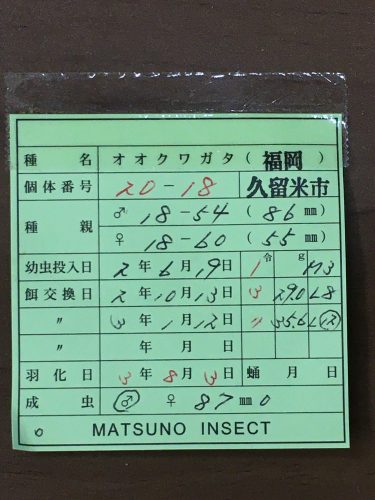 種名 オオクワガタ(福岡
個体番号 20-18 久留米市
種親 ♂ 18-54 (86㎜)
♀ 18-60 (55㎜)
幼虫投入日 2年6月19日 1令 g M3
餌交換日 2年10月13日 3 29.0 L8
〃 3年1月12日 〃 35.6 L12
〃 年 月 日
羽化日 3年8月3日 蛹 月 日
成虫 ♂ ♀ 87㎜0
0 MATSUNO INSECT